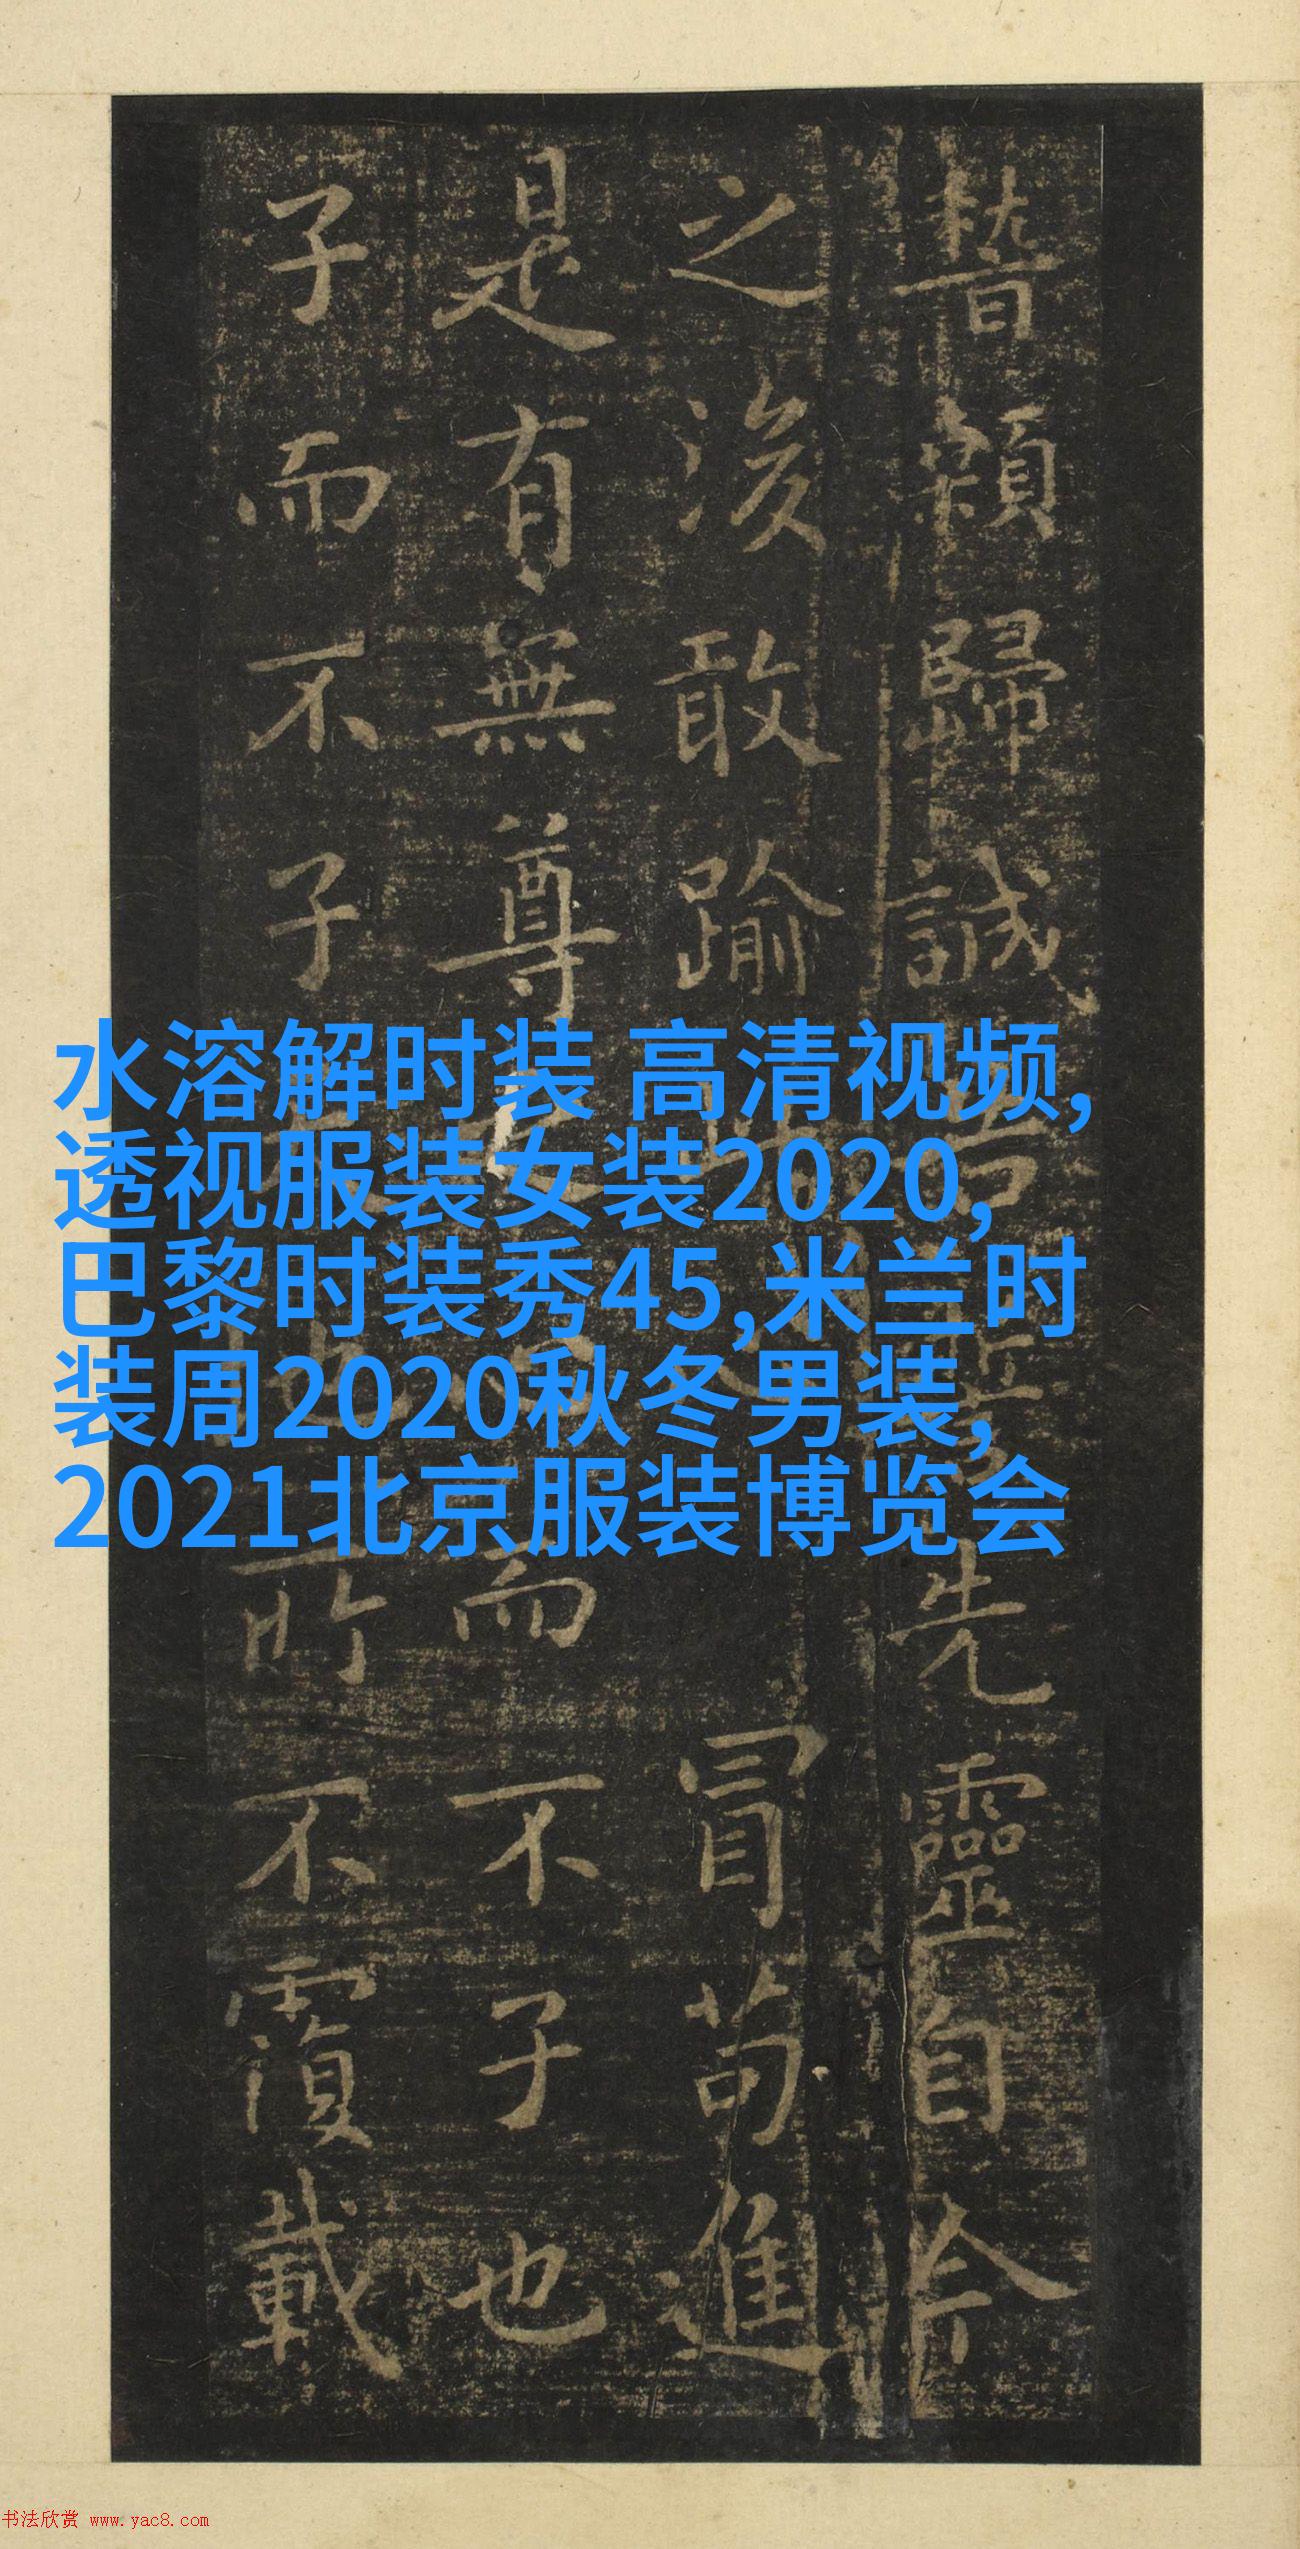 稽顙歸誠告誓先靈自今
之後敢踰冒苟進
是有無尊之心而不子也
子而不子所不覆載
水溶解时装 高清视频,
透视服装女装2020,
巴黎时装秀45,米兰时
装周2020秋冬男装,
2021北京服装博览会
书法欣赏 www.yac8.com